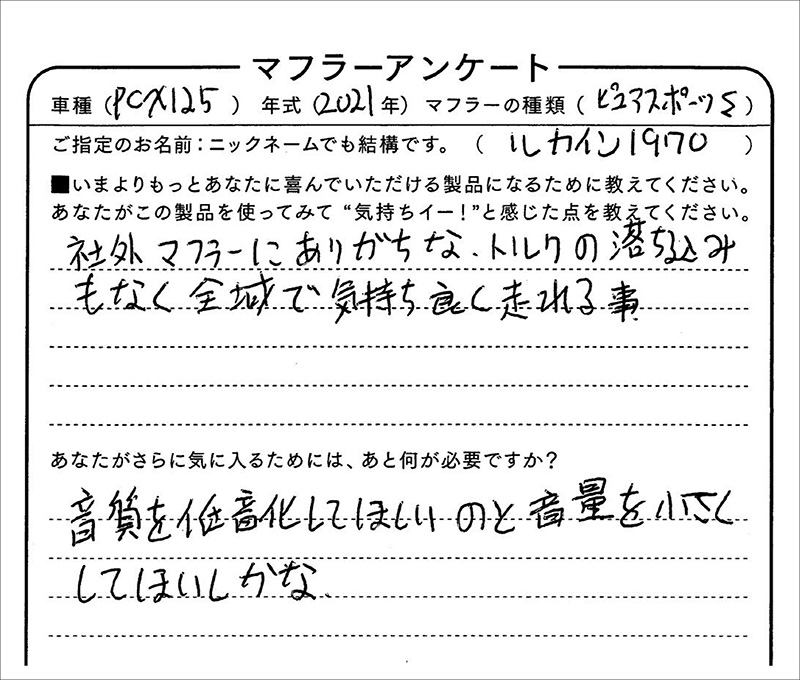 マフラーアンケート
車種（PCX125）年式（2021年）マフラーの種類（ピュアスポーツS）
ご指定のお名前：ニックネームでも結構です。（ルカイン1970）
■いまよりもっとあなたに喜んでいただける製品になるために教えてください。
あなたがこの製品を使ってみて“気持ちイー！”と感じた点を教えてください。
社外マフラーにありがちな、トルクの落ち込み
もなく全域で気持ち良く走れる事
あなたがさらに気に入るためには、あと何が必要ですか？
音質を低音化してほしいのと音量を小さく
してほいしかな、